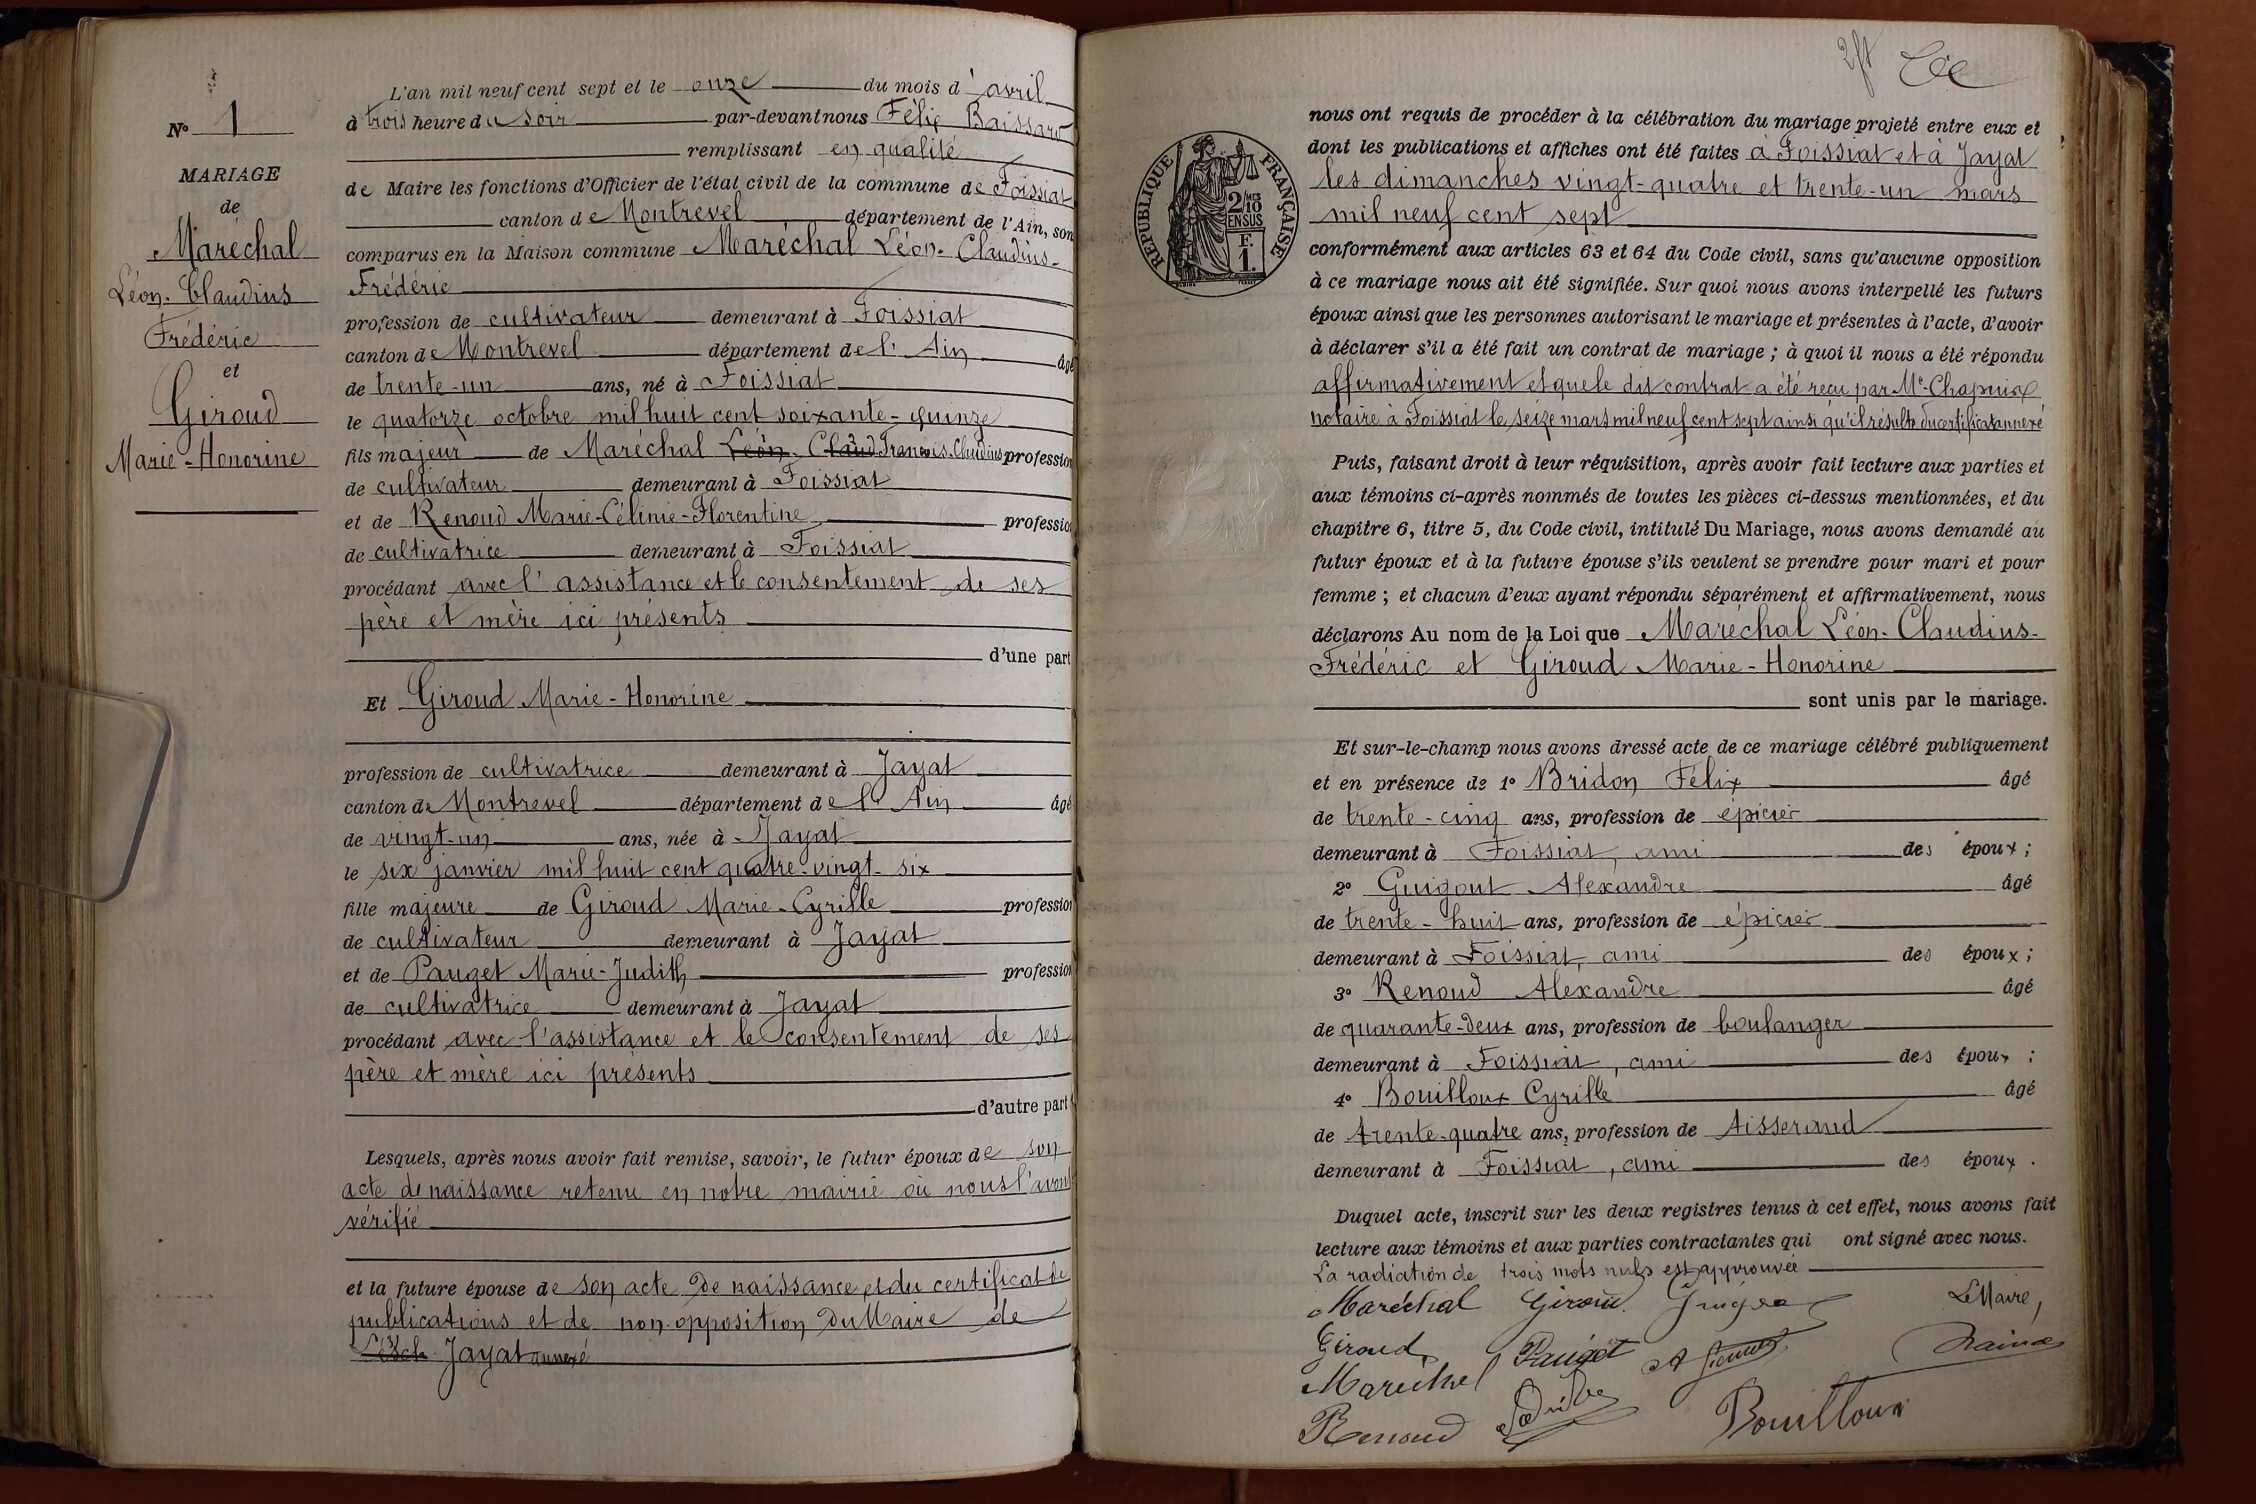 N° 1
MARIAGE
de
Maréchal
Léon-Claudius
Frédéric
et
Giroud
Marie-Honorine
L'an mil neuf cent sept et le onze du mois d'avril
à trois heure du soir par-devant nous Félix
remplissant en qualité
de Maire les fonctions d'Officier de l'état civil de la commune de Foissiat
canton de Montrevel département de l'Ain, son
comparus en la Maison commune Maréchal Léon-Claudius-
Frédéric
profession de cultivateur demeurant à Foissiat
canton de Montrevel département de l'Ain âgé
de trente-un ans, né à Foissiat
le quatorze octobre mil huit cent soixante-quinze
fils majeur de Maréchal Léon-Claud François-Claudius profession
de cultivateur demeurant à Foissiat
et de Renoud Marie-Célinie-Florentine profession
de cultivatrice demeurant à Foissiat
procédant avec l'assistance et le consentement de ses
père et mère ici présents
d'une part
Et Giroud Marie-Honorine
profession de cultivatrice demeurant à Jayat
canton de Montrevel département de l'Ain âgé
de vingt-un ans, née à Jayat
le six janvier mil huit cent quatre-vingt-six
fille majeure de Giroud Marie-Cyrille profession
de cultivateur demeurant à Jayat
et de Pauget Marie-Judith profession
de cultivatrice demeurant à Jayat
procédant avec l'assistance et le consentement de ses
père et mère ici présents
d'autre part
Lesquels, après nous avoir fait remise, savoir, le futur époux de son
acte de naissance retenu en notre mairie où nous l'avons
vérifié
et la future épouse de son acte de naissance et du certificat de
publications et de non opposition du Maire de
Jayat annexé
nous ont requis de procéder à la célébration du mariage projeté entre eux et
dont les publications et affiches ont été faites à Foissiat et à Jayat
les dimanches vingt-quatre et trente-un mars
mil neuf cent sept
RÉPUBLIQUE FRANÇAISE
2/10 EN SUS
F. 1.
conformément aux articles 63 et 64 du Code civil, sans qu'aucune opposition
à ce mariage nous ait été signifiée. Sur quoi nous avons interpellé les futurs
époux ainsi que les personnes autorisant le mariage et présentes à l'acte, d'avoir
à déclarer s'il a été fait un contrat de mariage ; à quoi il nous a été répondu
affirmativement et que le dit contrat a été reçu par Me Chapuis
notaire à Foissiat le seize mars mil neuf cent sept ainsi qu'il résulte du certificat annexé
Puis, faisant droit à leur réquisition, après avoir fait lecture aux parties et
aux témoins ci-après nommés de toutes les pièces ci-dessus mentionnées, et du
chapitre 6, titre 5, du Code civil, intitulé Du Mariage, nous avons demandé au
futur époux et à la future épouse s'ils veulent se prendre pour mari et pour
femme ; et chacun d'eux ayant répondu séparément et affirmativement, nous
déclarons Au nom de la Loi que Maréchal Léon-Claudius-
Frédéric et Giroud Marie-Honorine
sont unis par le mariage.
Et sur-le-champ nous avons dressé acte de ce mariage célébré publiquement
et en présence de 1° Bridon Félix âgé
de trente-cinq ans, profession de épicier
demeurant à Foissiat, ami des époux ;
2° Guigout Alexandre âgé
de trente-huit ans, profession de épicier
demeurant à Foissiat, ami des époux ;
3° Renoud Alexandre âgé
de quarante-deux ans, profession de boulanger
demeurant à Foissiat, ami des époux ;
4° Bouilloux Cyrille âgé
de trente-quatre ans, profession de tisserand
demeurant à Foissiat, ami des époux.
Duquel acte, inscrit sur les deux registres tenus à cet effet, nous avons fait
lecture aux témoins et aux parties contractantes qui ont signé avec nous.
La radiation de trois mots nuls est approuvée
Maréchal Giroud
Le Maire,
Giroud Pauget
Maréchal
Renoud
Bouilloux